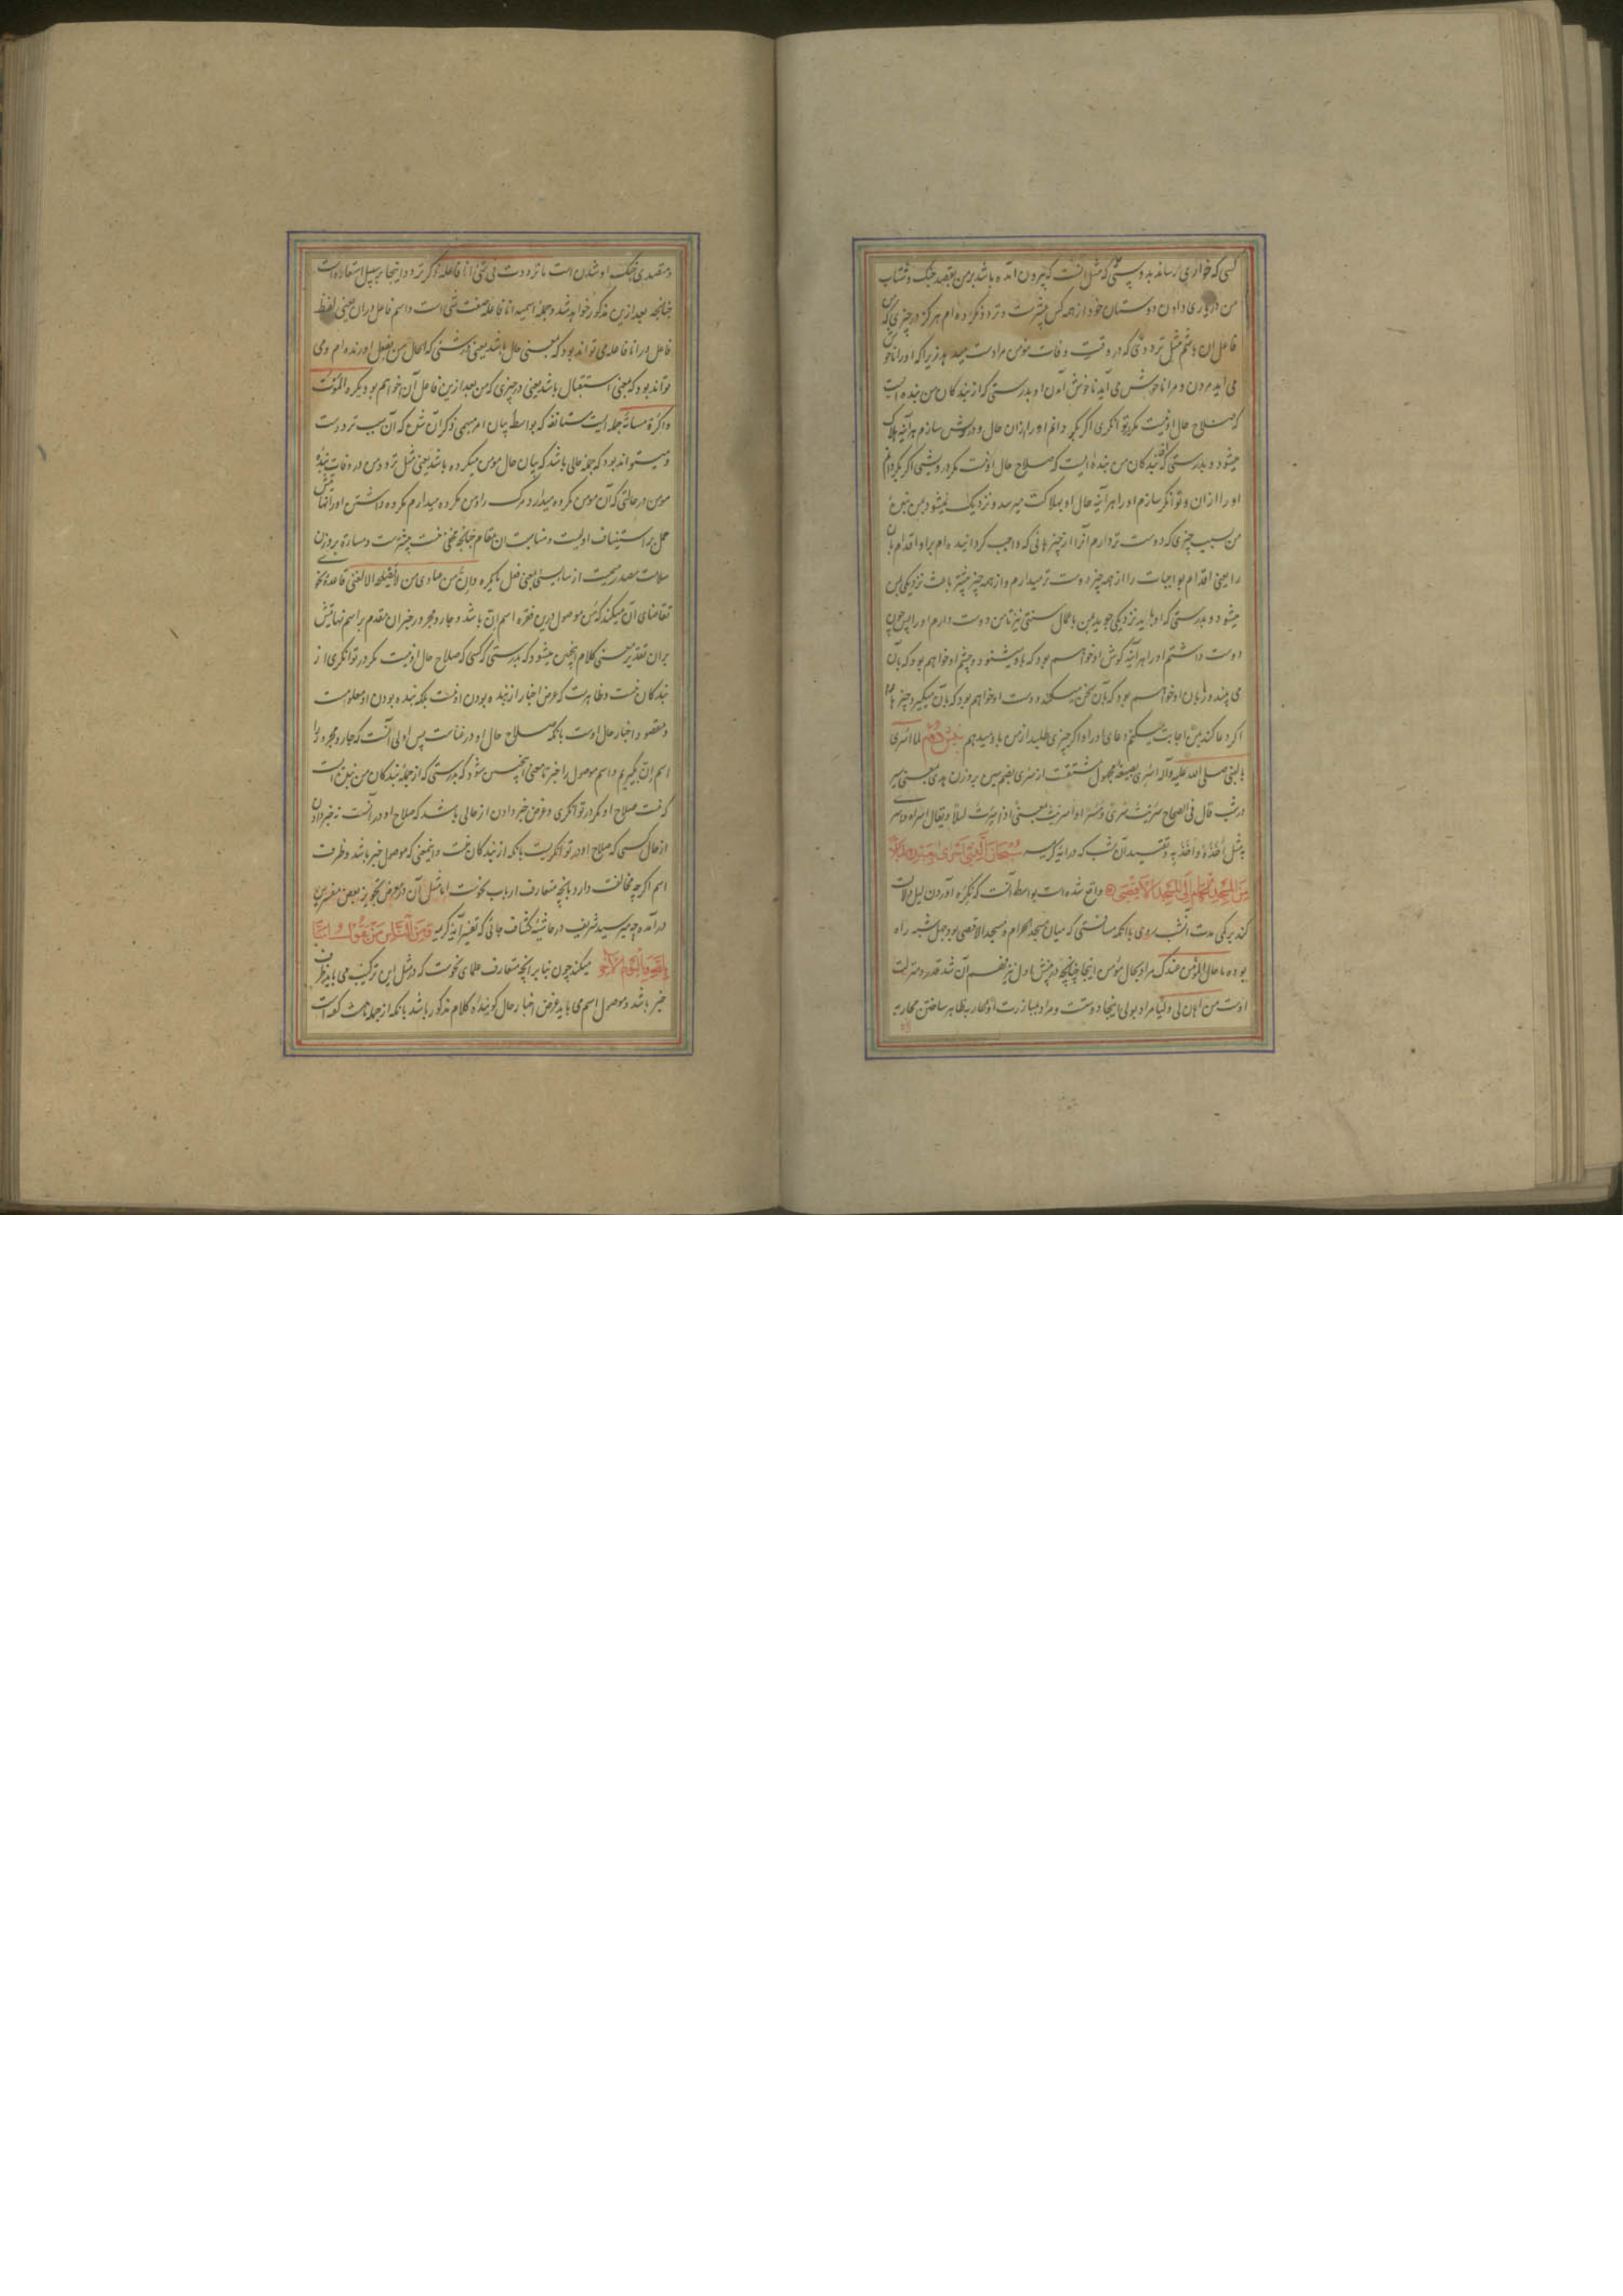 کسی که خواری رساند بدوستی که مثل آنست که بیرون آمده باشد بر من بقصد جنک و شتاب
من در یاری دادن دوستان خود از همه کس بیشترست و تردد نکرده ام هرکز در چیزی که من
فاعل آن باشم مثل ترددی که در وقت وفات مؤمن مرا دست میدهد زیرا که او را ناخوش
می آید مردن و مرا ناخوش می آید ناخوش آمدن او و بدرستی که از بندکان من بنده ایست
که صلاح حال او نیست مکر بتوانکری اکر بکردانم او را از آن حال و درویش سازم هر آینه هلاک
میشود و بدرستی که از بندکان من بنده ایست که صلاح حال او نیست مکر در درویشی اکر بکردانم
او را از آن و توانکر سازم او را هر آینه حال او بهلاکت میرسد و نزدیک نمیشود بمن بنده
من بسبب چیزی که دوست تر دارم آنرا از چیزهائی که واجب کردانیده ام بر او اقدام بآن
را یعنی اقدام بواجبات را از همه چیز دوست تر میدارم و از همه چیز بیشتر باعث نزدیکی بمن
میشود و بدرستی که او هر آینه نزدیکی جوید بمن باعمال سنتی نیز تا من دوست دارم او را پس چون
دوست داشتم او را هر آینه کوش او خواهم بود که بآن میشنود و چشم او خواهم بود که بآن
می بیند و زبان او خواهم بود که بآن سخن میکند و دست او خواهم بود که بآن میکیرد چیزها
اکر دعا کند من اجابت میکنم دعای او را و اکر چیزی طلبد از من باو میدهم لما اسری
بالنبی صلی الله علیه وآله اسری بصیغه مجهول مشتقست از سری بضم سین بر وزن هدی بمعنی سیر
در شب قال فی الصحاح سریت سری و مسری و اسریت بمعنی اذا سرت لیلا و یقال اسراه و اسری
به مثل اخذه و اخذ به و تقیید آن بشب که در آیه کریمه سبحان الذی اسری بعبده لیلا
من المسجد الحرام الی المسجد الاقصی واقع شده است بواسطه آنست که نکره آوردن لیل دلالت
کند بر کمی مدت آن شب روی با آنکه مسافتی که میان مسجد الحرام و مسجد الاقصی بود چهل شبه راه
بوده ما حال المؤمن عندک مراد بحال مؤمن اینجا چنانچه در پیش اول نیز بقلم آن شد قدر و منزلت
اوست من اهان لی ولیا مراد بولی اینجا دوست است و مراد بمبارزت او محاربه ظاهر ساختن محاربه
و متصدی جنک او شدن است ما ترددت فی شیء انا فاعله ذکر تردد اینجا بر سبیل استعاره است
چنانچه بعد ازین مذکور خواهد شد و جمله اسمیه انا فاعله صفت شیء است و اسم فاعل در آن یعنی لفظ
فاعل در انا فاعله می تواند بود که بمعنی حال باشد یعنی در شیئی که الحال من بفعل آورنده ام و می
تواند بود که بمعنی استقبال باشد یعنی در چیزی که من بعد ازین فاعل آن خواهم بود یکره الموت
و اکره مسائته جمله ایست مستانفه که بواسطه بیان امر مبهمی ذکر آن شده که آن سبب ترددست
و میتواند بود که جمله حالی باشد که بیان حال مؤمن میکرده باشد یعنی مثل تردد من در وفات بنده
مؤمن در حالتی که آن مؤمن مکروه میدارد مرک را و من مکروه میدارم مکروه داشتن او را
حمل بر استیناف اولیست و مناسبت آن بمقام چنانچه مخفی نیست بیشترست و مساءة بر وزن
سلامت مصدر میمیست از ساء یسوء یعنی فعل یا یکره و ان من عبادی من لا یصلحه الا الغنی قاعده نحو
تقاضای آن میکند که من موصول درین فقره اسم ان باشد و جار و مجرور خبر آن مقدم بر اسم نهایتش
بر آن تقدیر معنی کلام اینچنین میشود که بدرستی که کسی که صلاح حال او نیست مکر در توانکری از
بندکان منست و ظاهرست که غرض اخبار از بنده بودن او نیست بلکه بنده بودن او معلومست
و مقصود اخبار حال اوست بآنکه صلاح حال او در غناست پس اولی آنست که جار و مجرور را
اسم ان بکیریم و اسم موصول را خبر تا معنی اینچنین شود که بدرستی که از جمله بندکان من بنده ایست
که نیست صلاح او مکر در توانکری و غرض خبر دادن از حالی باشد که صلاح او در آنست نه خبر دادن
از حال کسی که صلاح او در توانکریست بآنکه از بندکان منست و اینمعنی که موصول خبر باشد و ظرف
اسم اکرچه مخالفت دارد بآنچه متعارف ارباب نحوست اما مثل آن در معرض تجویز بعض مفسرین
در آمده چو میر سید شریف در حاشیه کشاف جائی که تفسیر آیه کریمه و من الناس من یقول آمنا
بالله و بالیوم الآخر میکند چون بنا بر آنچه متعارف علمای نحوست که در مثل این ترکیب می باید ظرف
خبر باشد و موصول اسم می باید غرض اخبار حال کوینده کلام مذکور باشد بآنکه از جمله ناست